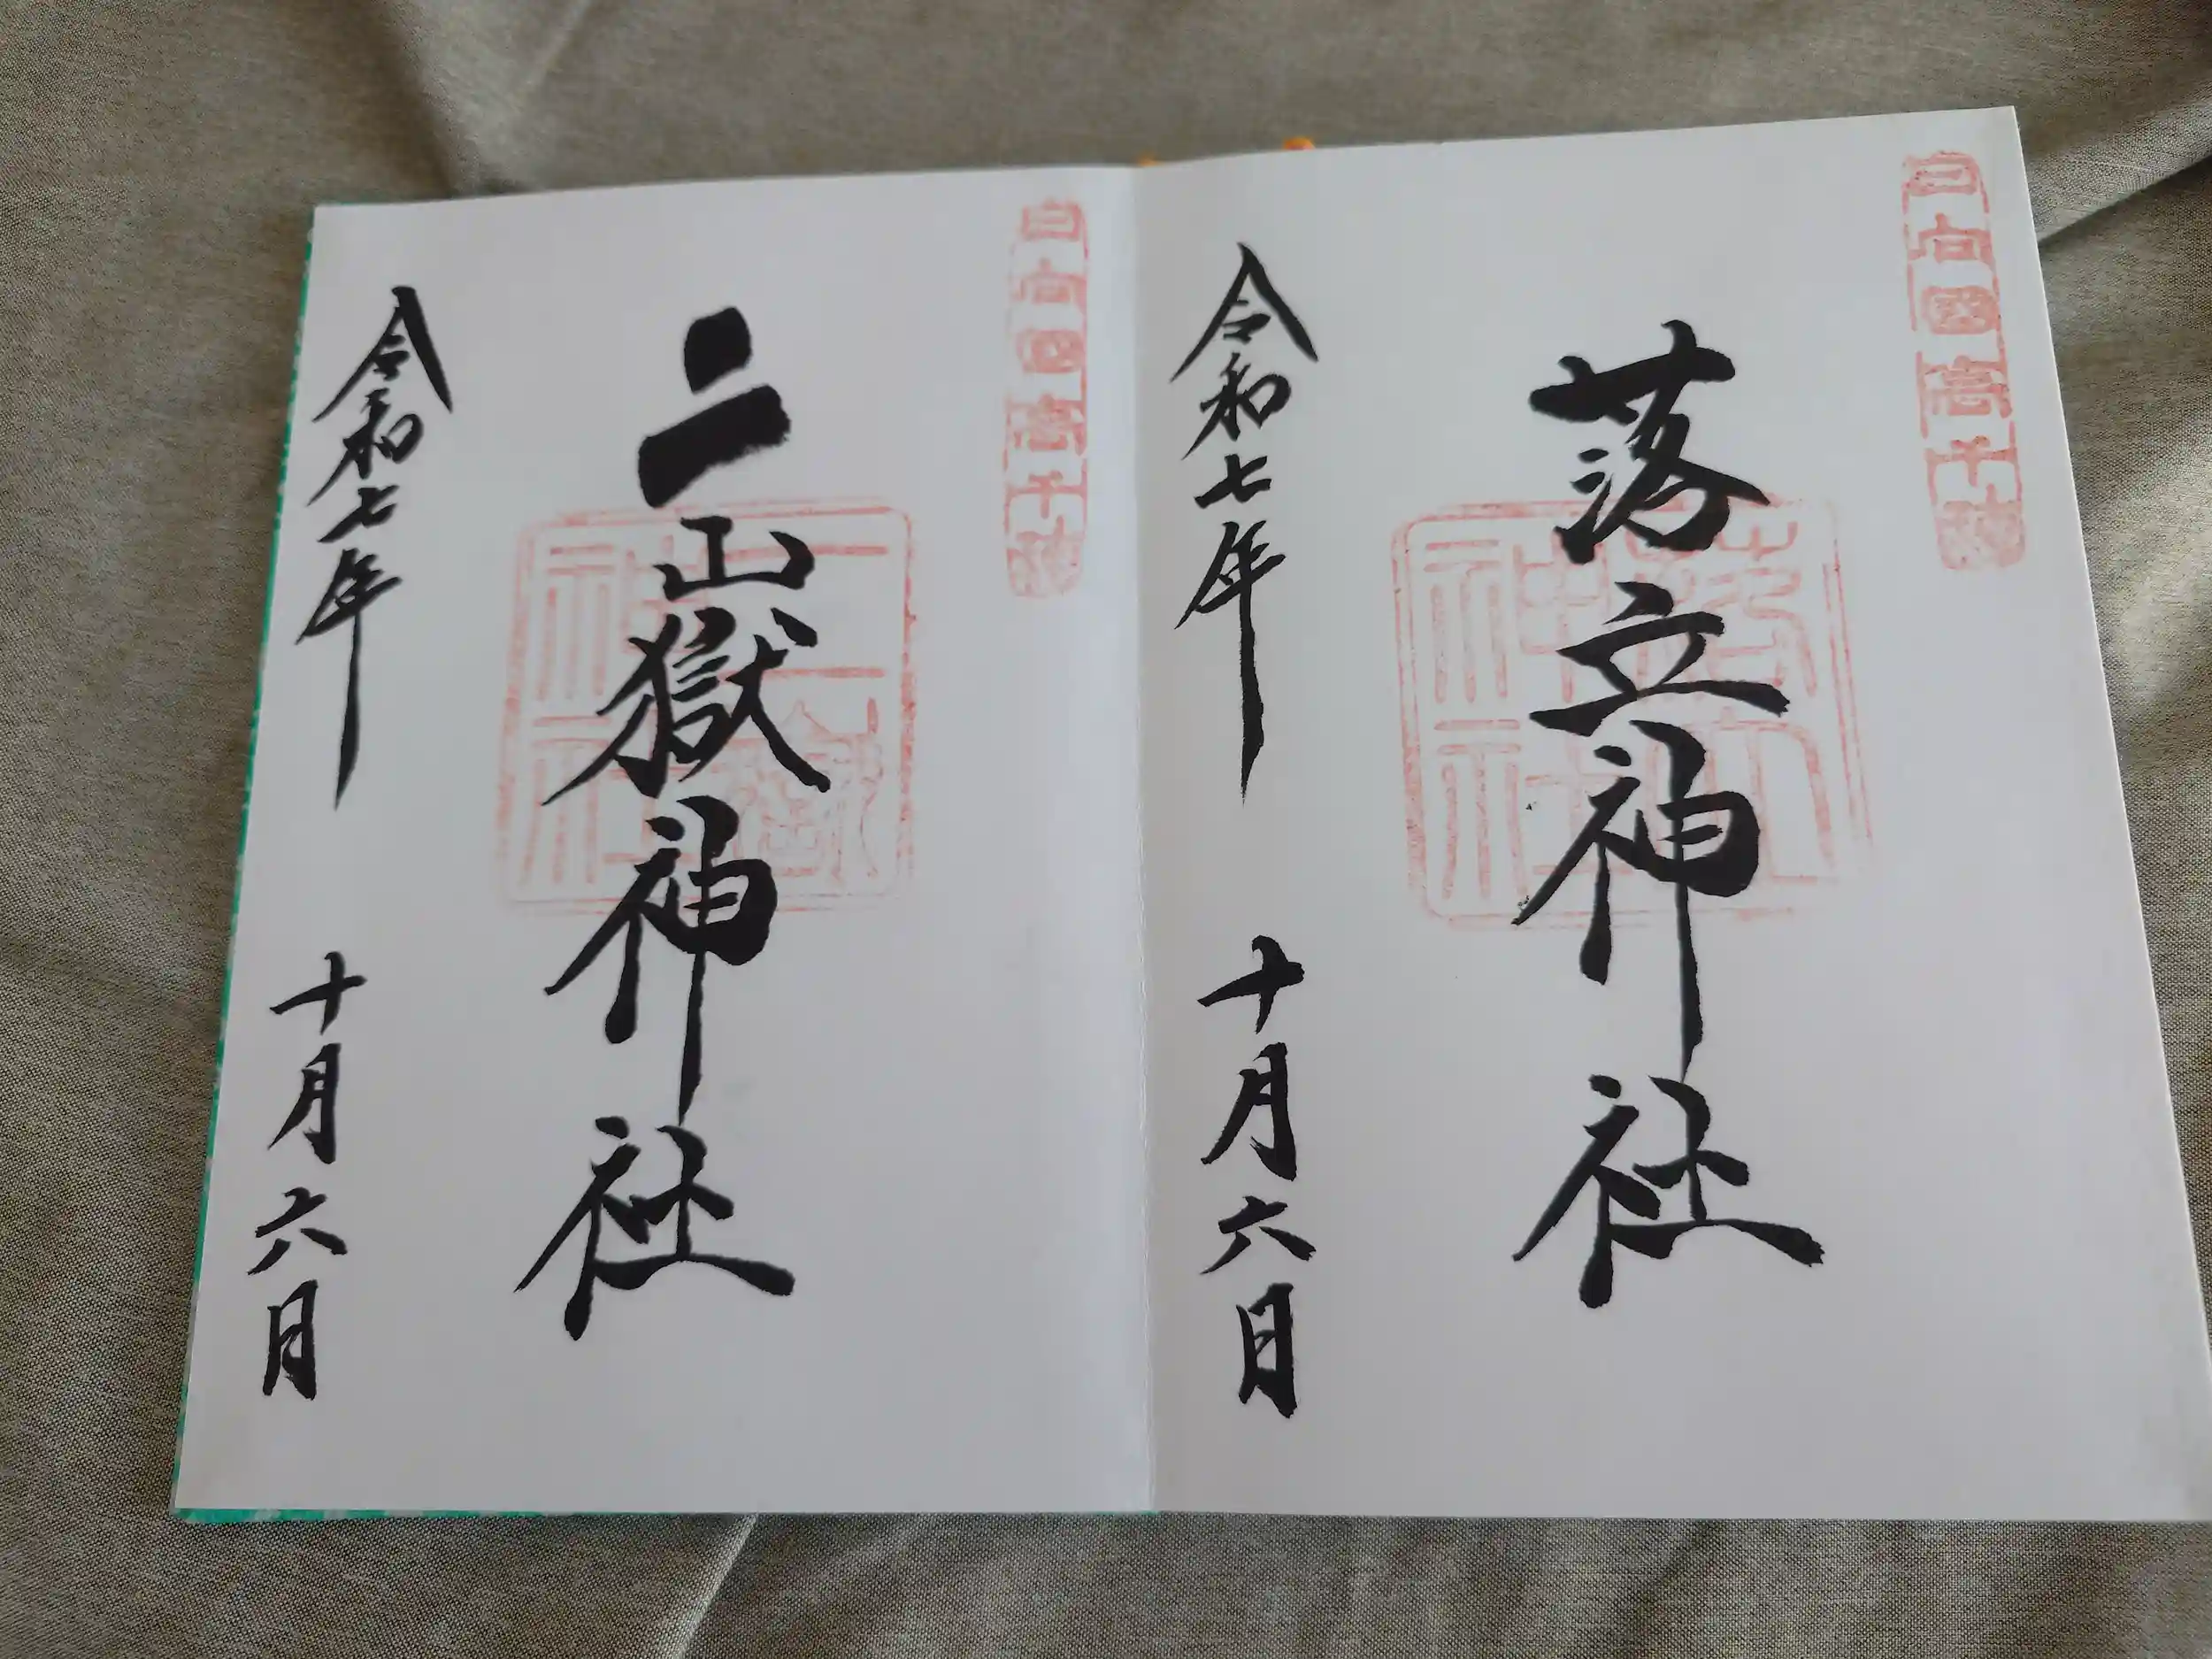 日向國高千穂
落立神社
落立神社
令和七年 十月六日
日向國高千穂
二嶽神社
二嶽神社
令和七年 十月六日